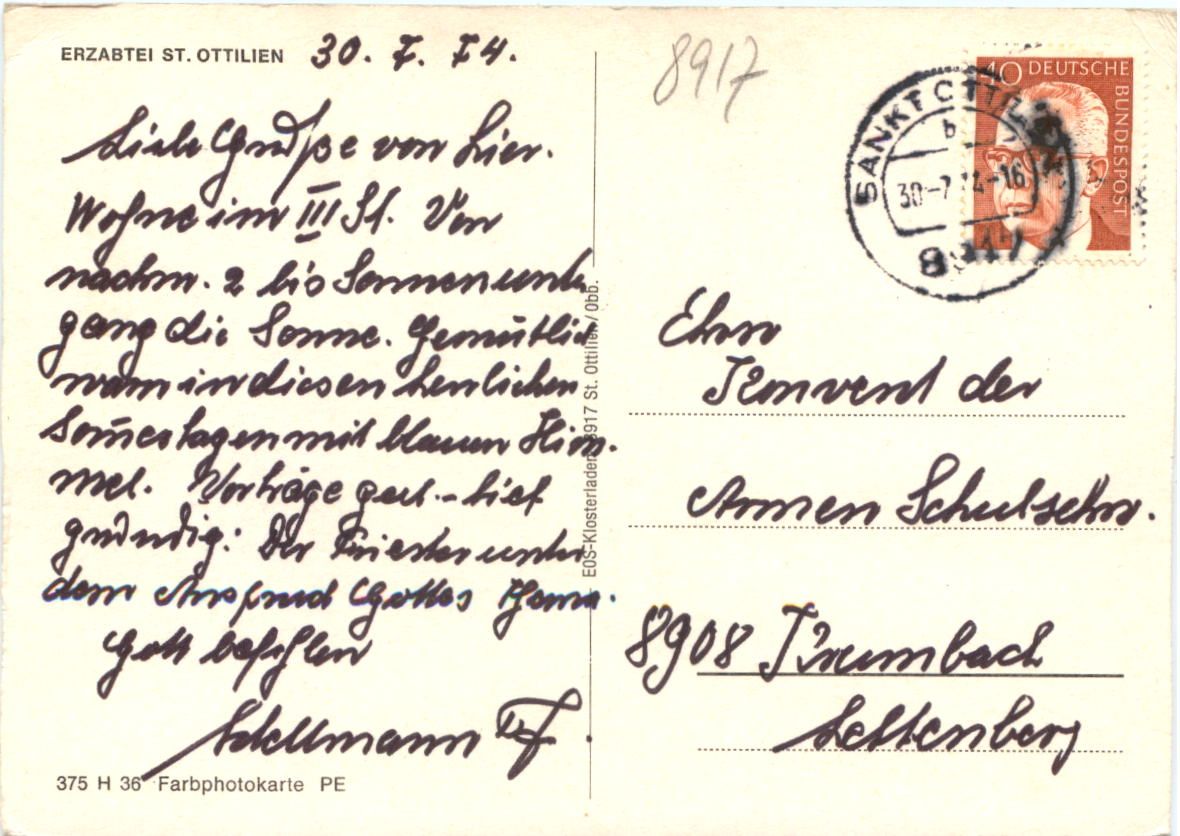 ERZABTEI ST. OTTILIEN 30. 7. 74.
Liebe Grüße von hier.
Wohne im III St. Von
nachm. 2 bis Sonnenunter
gang die Sonne. Gemütlich
warm in diesen herrlichen
Som̄ertagen mit blauem Him-
mel. Vorträge gut. - tief
gründig: Der Priester unter
dem Anspruch Gottes Thema.
Gott befohlen
375 H 36 Farbphotokarte PE
EOS-Klosterladen 8917 St. Ottilien/Obb.
8917
SANKT OTTILIEN
b
30-7.74-16
8917
40 DEUTSCHE
BUNDESPOST
Ehrw
Konvent der
Armen Schulschw.
8908 Krumbach